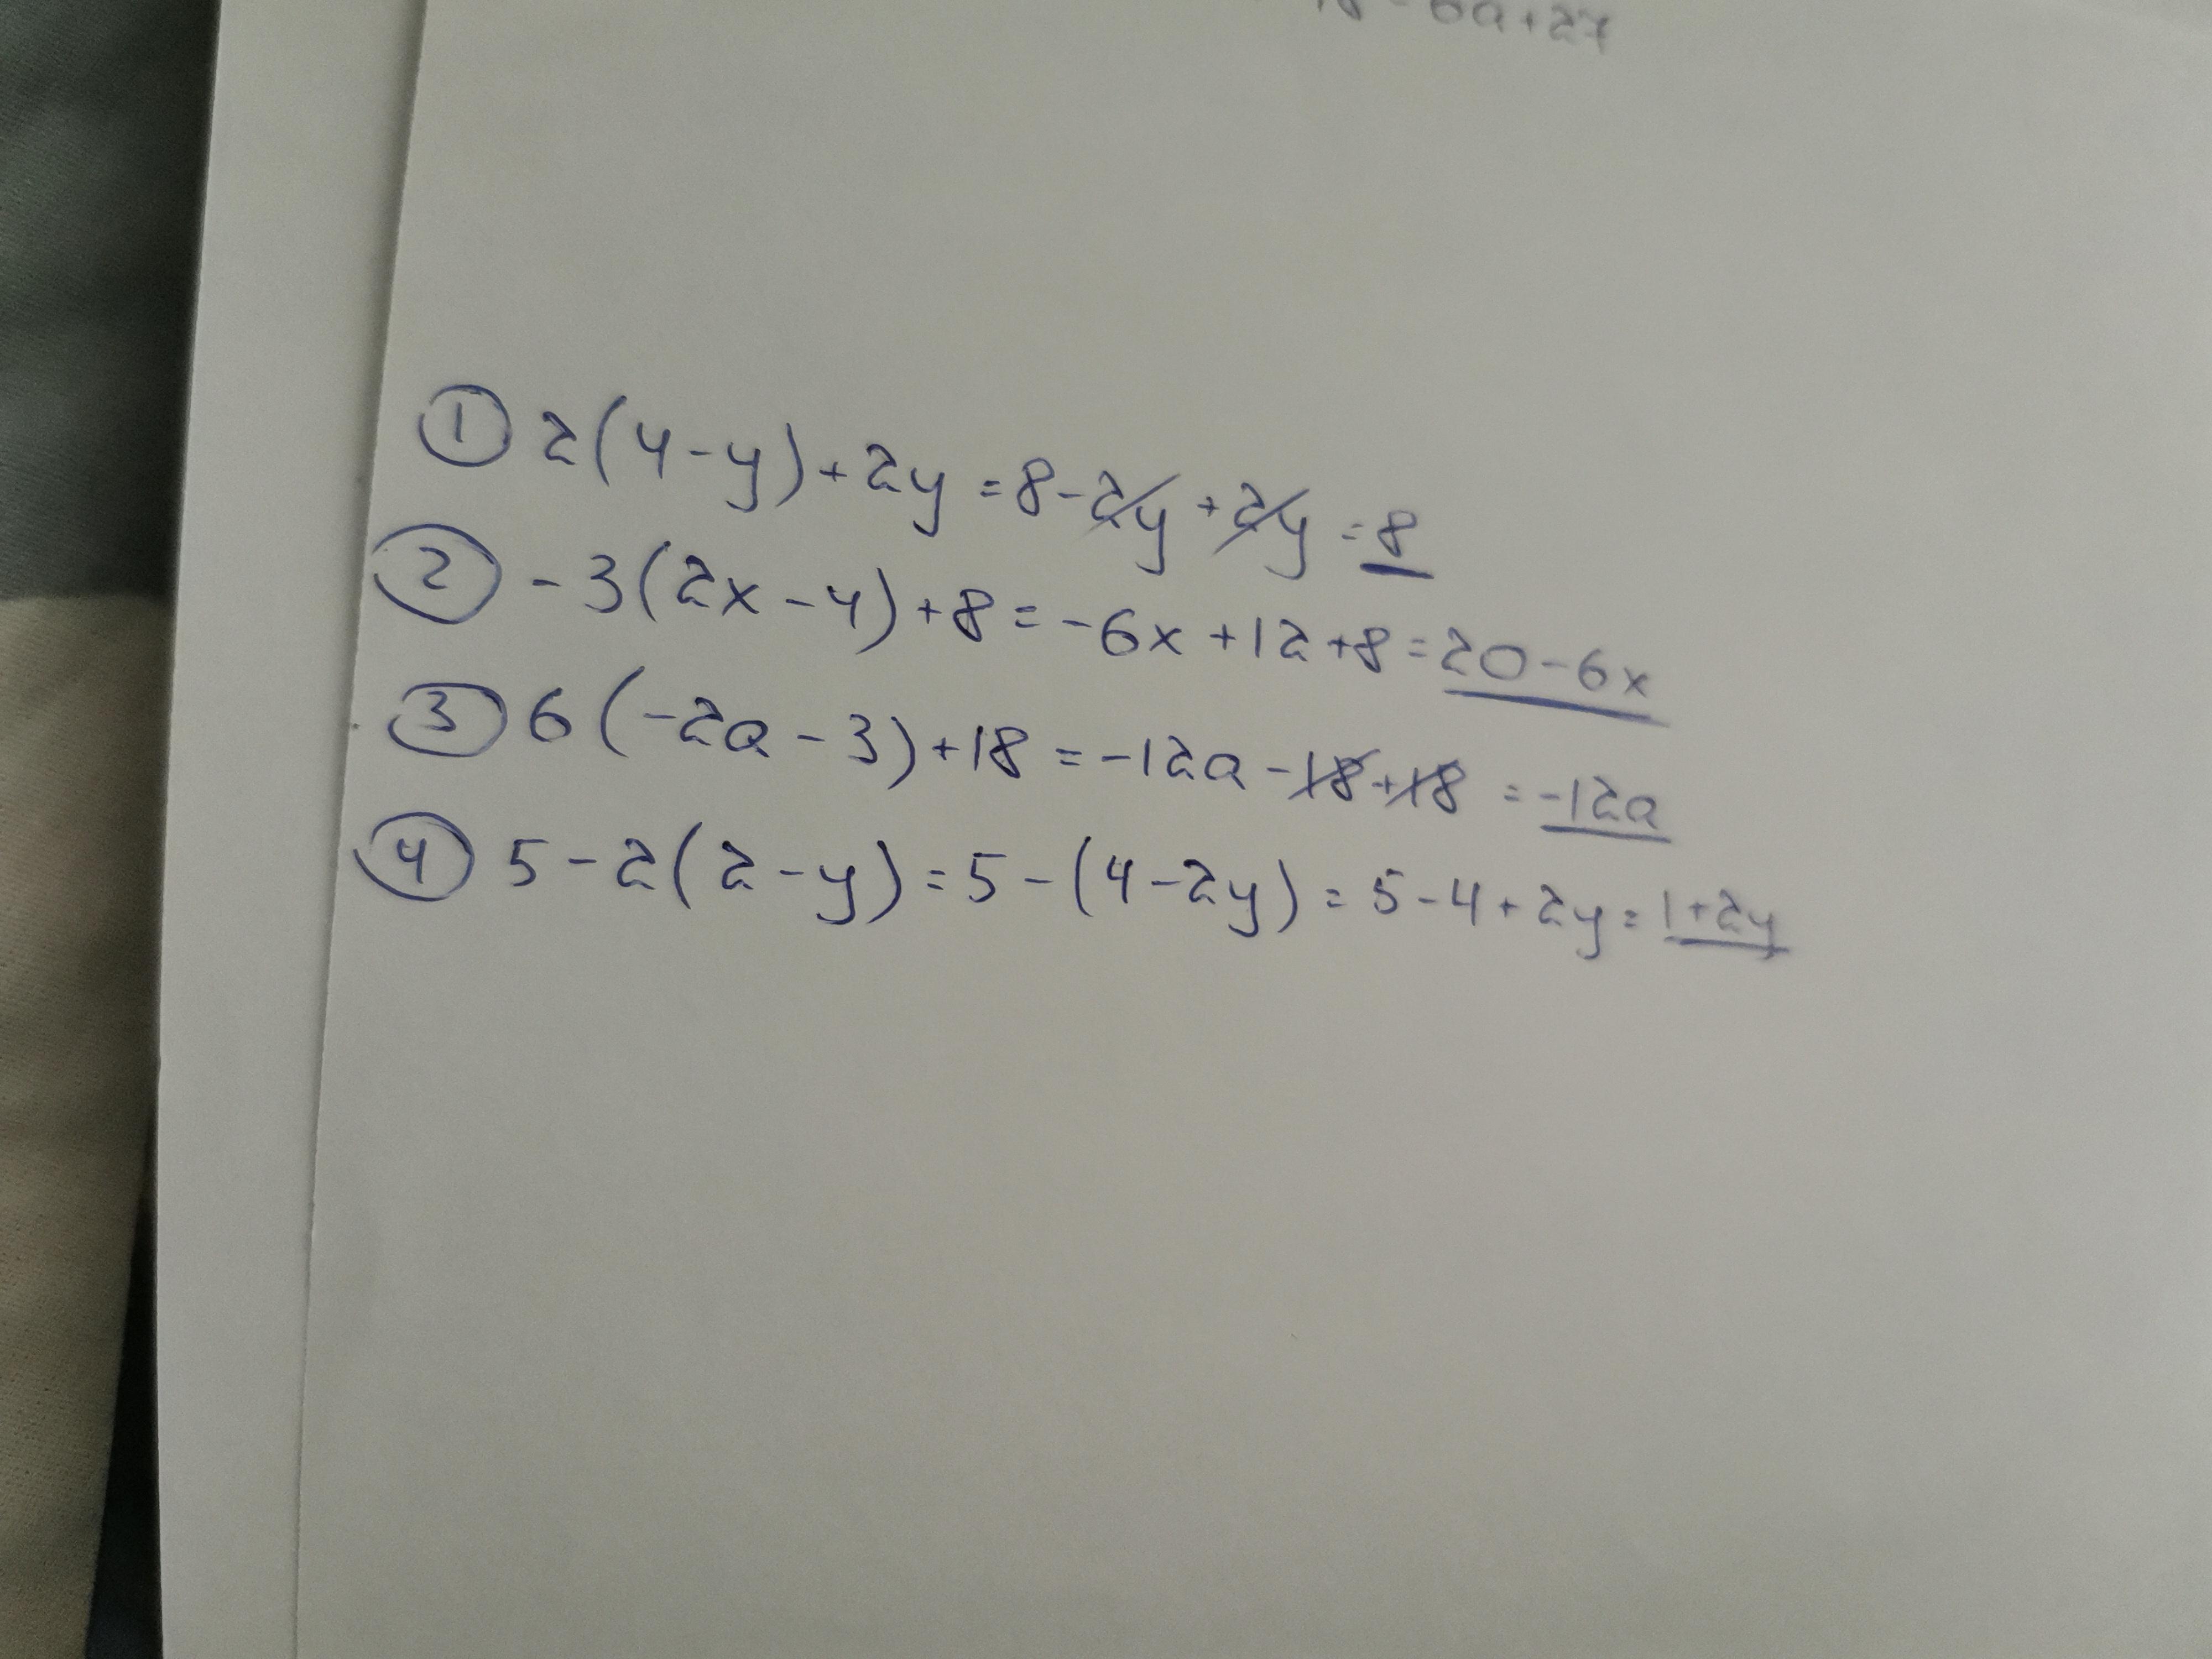 - 6a + 27
① 2(4-y)+2y = 8-2y+2y = 8
② -3(2x-4)+8 = -6x+12+8 = 20-6x
③ 6(-2a-3)+18 = -12a-18+18 = -12a
④ 5-2(2-y) = 5-(4-2y) = 5-4+2y = 1+2y